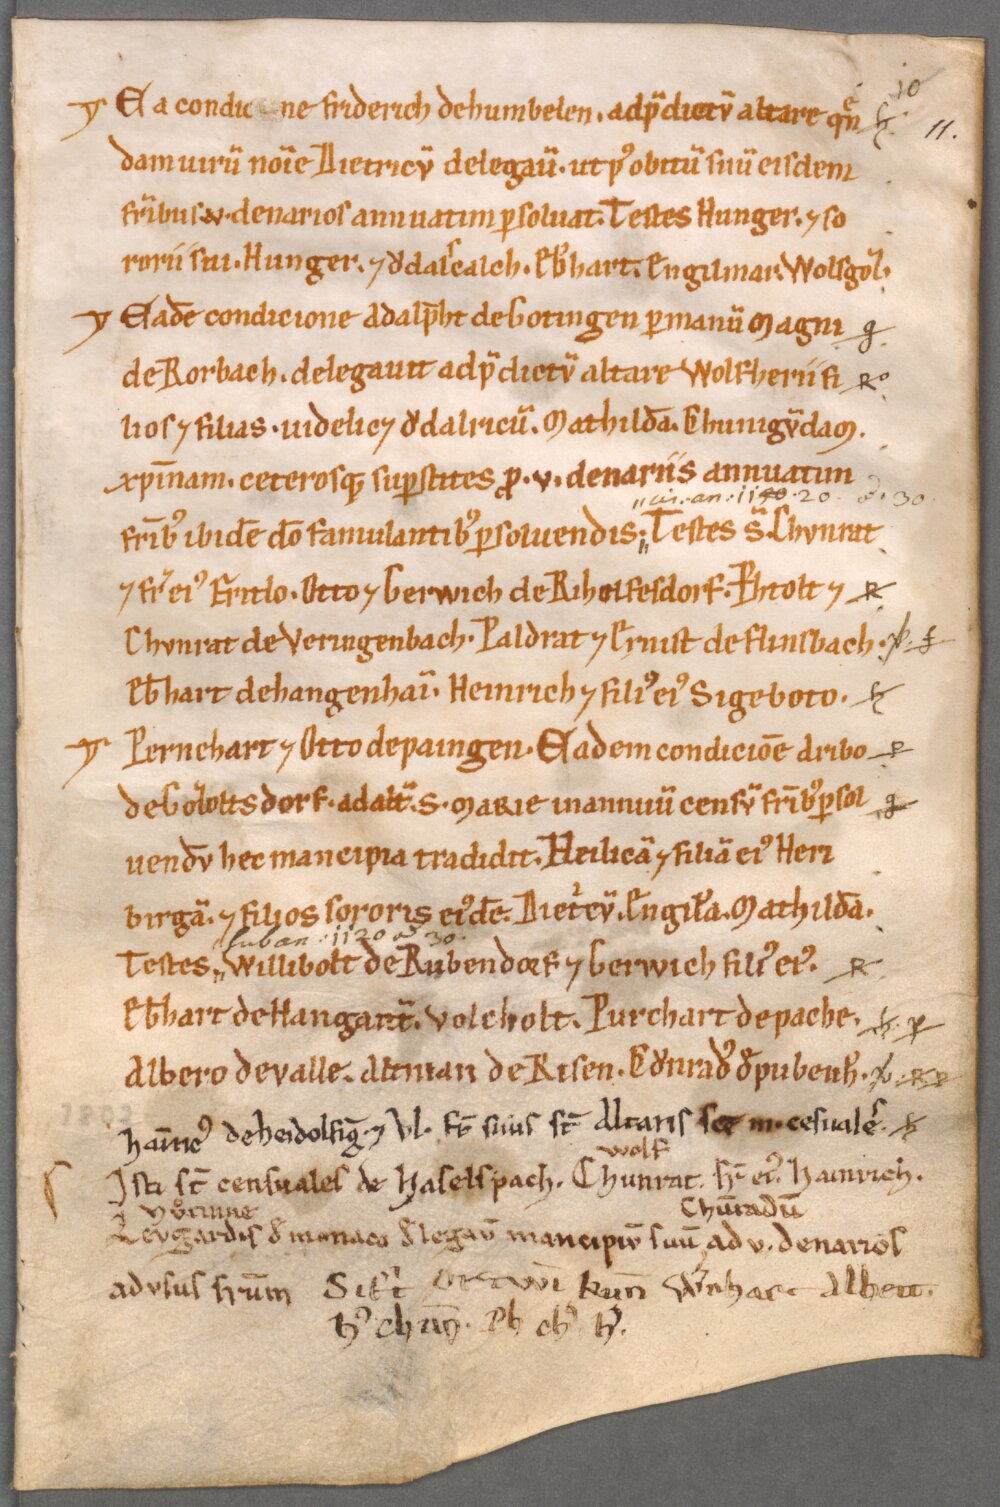 10
11.
Ea condic ne friderich de humbelen. ad p̄dictū altare quē
dam uirū noīe Dietricū delegaū. ut pꝰ obitū suū eisdem
fr̄ibus v. denarios annuatim psoluat. Testes Hunger. ⁊ so
rorii sui. Hunger. ⁊ Odalscalch. Eb̄hart. Engilmar. Wolfgōl.
Eadē condicione Adalp̄ht de Gotingen p manū Magni
de Rorbach. delegauit ad p̄dictū altare Wolfherii fi
lios ⁊ filias. uidelic⁊ Odalricū. Mathildā. Chunigūdam.
xp̄inam. ceterosq; supstites ꝓ .v. denariis annuatim
cir. an. 1120 30
fr̄ibꝰ ibidē dō famulantibꝰ psoluendis. Testes s̄. Chunrat
⁊ fr̄ eiꝰ Fritlo. Otto ⁊ Gerwich de Riholfesdorf. Phtolt ⁊
Chunrat de Veringenbach. Paldrat ⁊ Ernist de flinsbach.
Eb̄hart de hangenhaū. Heinrich ⁊ filiꝰ eiꝰ Sigeboto.
Pernehart ⁊ Otto de paingen. Eadem condiciōe Aribo
de Golottsdorf. ad altā. S. Marie in annuū censū fr̄ibꝰ psol
uendū hec mancipia tradidit. Heilicā ⁊ filiā eiꝰ Heri
birgā. ⁊ filios sororis eiꝰdē. Dietēū. Engilā. Mathildā.
sub an. 1120 30.
Testes Willibolt de Rubendorf ⁊ Gerwich filiꝰ eiꝰ.
Eb̄hart de Hangant̄. Volcholt. Purchart de pache.
Albero de valle. Altman de Risen. Chunradꝰ d pubenh̄.
hainricꝰ de heidolfīg ⁊ Vl. fr̄ suus st̄ Altaris sce m. cēsuales.
wolf
Isti st̄ censuales de Haselspach. Chunrat. fr̄ eiꝰ. Hainrich.
Chūradū
Leugardis d monaco delegaū mancipiū suū ad v. denarios
ad usus fr̄um Kun̄ Wꝰnhart Albert.